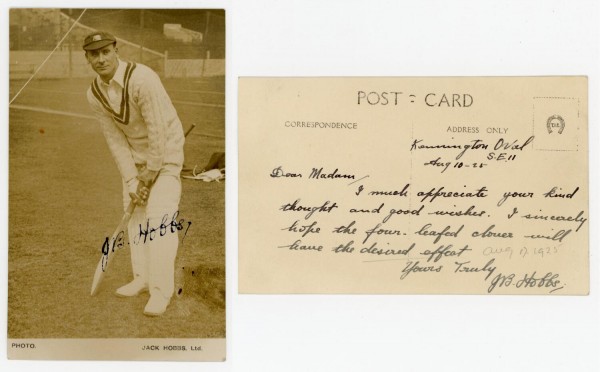 J B. Hobbs,
PHOTO.
JACK HOBBS, Ltd.
POST - CARD
CORRESPONDENCE
ADDRESS ONLY
Kennington Oval
S.E.11
Aug 10-25
Dear Madam,
I much appreciate your kind
thought and good wishes. I sincerely
hope the four-leafed clover will
have the desired effect
Yours Truly
J B. Hobbs.